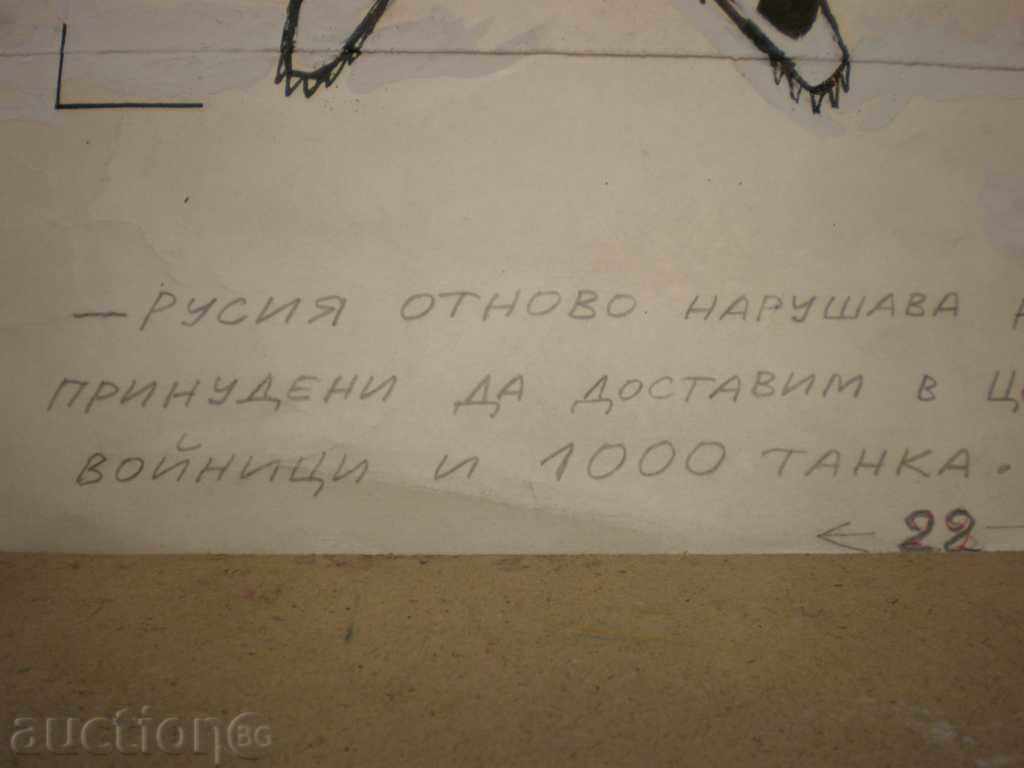 — РУСИЯ ОТНОВО НАРУШАВА
ПРИНУДЕНИ ДА ДОСТАВИМ В
ВОЙНИЦИ И 1000 ТАНКА.
← 22
auction BG